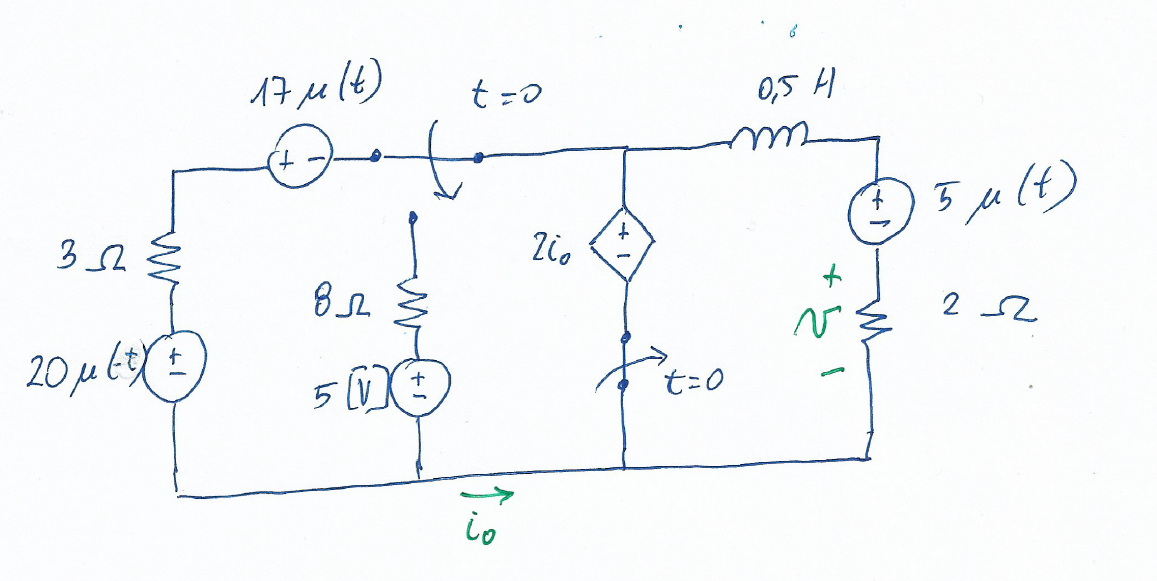 17 μ(t)
t=0
0,5 H
+ -
5 μ(t)
+
-
3 Ω
2i₀
+
-
8 Ω
+
v
-
2 Ω
20 μ(-t)
+
-
5 [V]
+
-
t=0
i₀